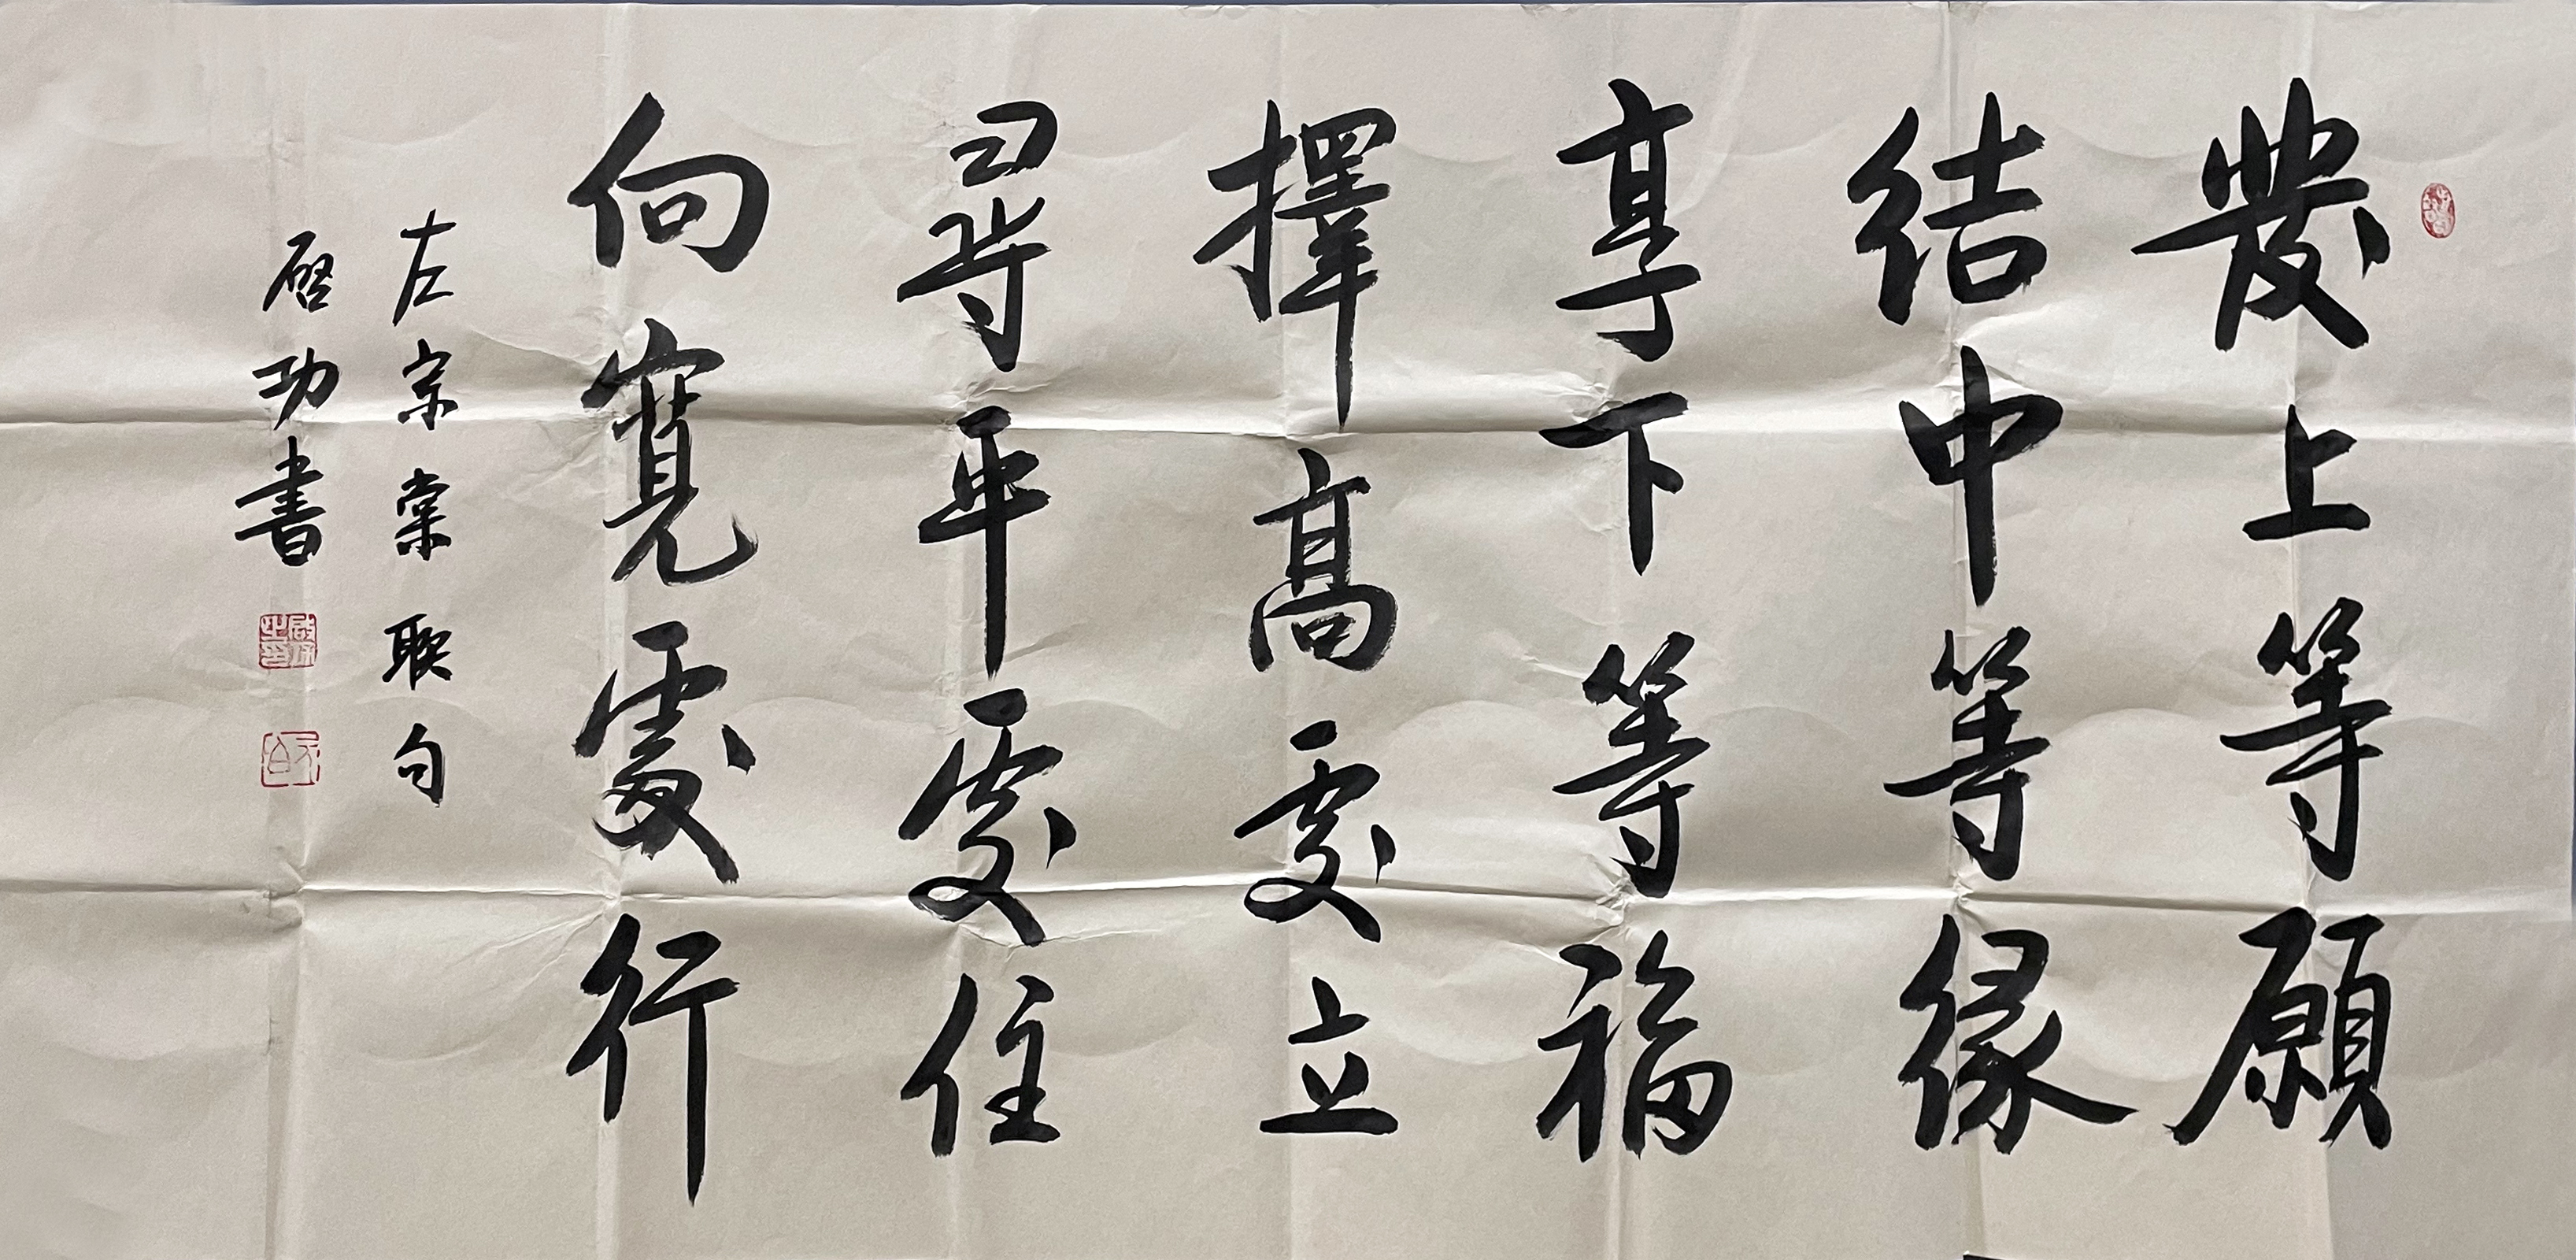 發上等願
結中等緣
享下等福
擇高處立
尋平處住
向寬處行
左宗棠聯句
啓功書